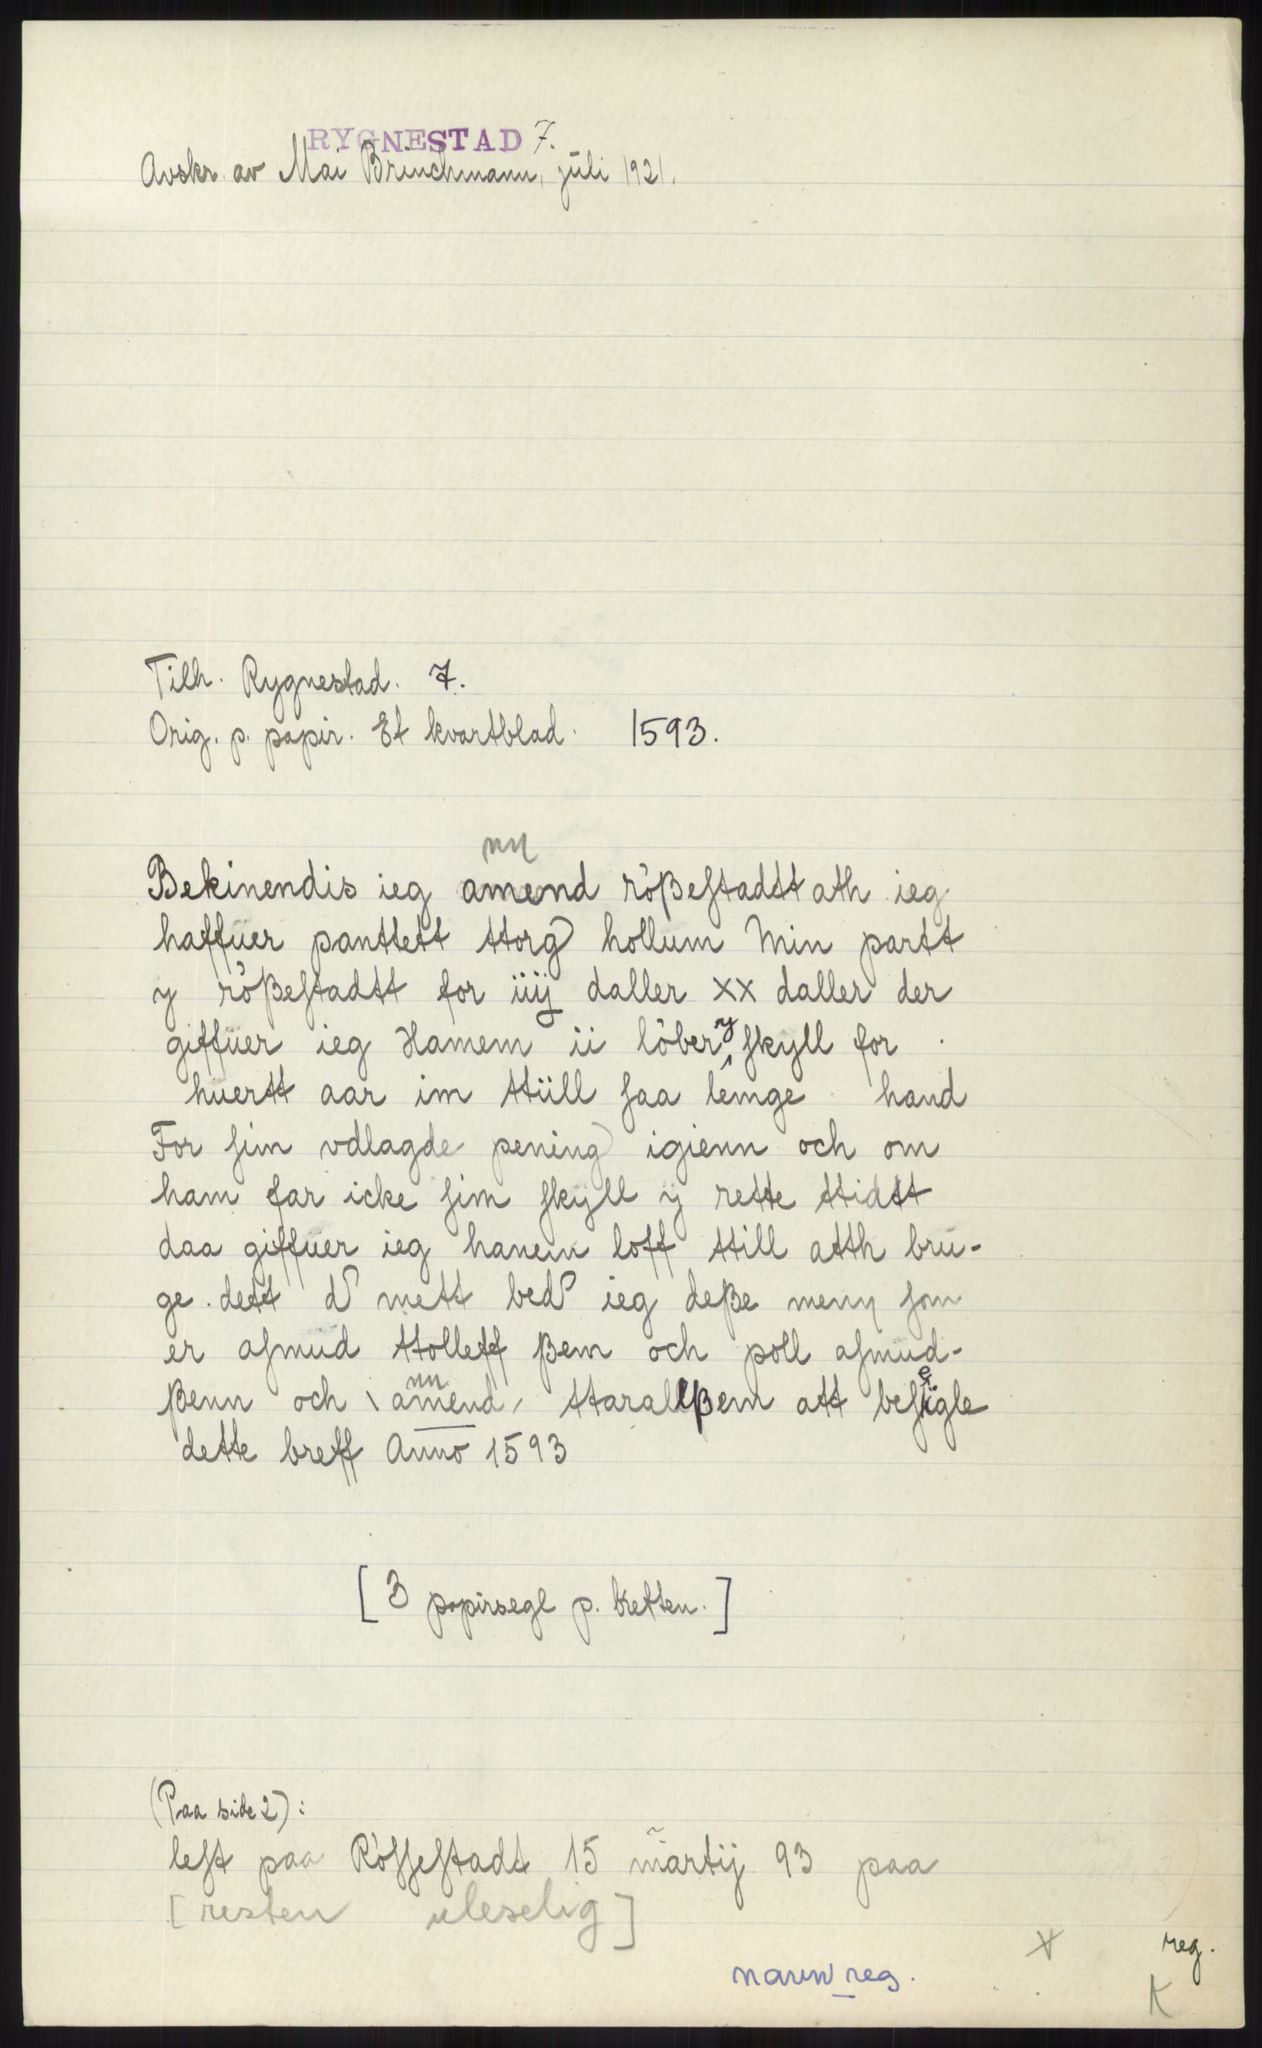 RYGNESTAD 7.
Avskr. av Mai Brinchmann, juli 1921.
Tilh. Rygnestad. 7.
Orig. p. papir. Et kvartblad. 1593.
nn
Bekinendis ieg amend rößestadtt ath ieg
haffuer panttett ttorg hollum Min partt
y rößestadtt for iiij daller xx daller der
giffuer ieg Hamem ii löber y skyll for
huertt aar im ttiill saa lemge hand
For sim vdlagde pening igienn och om
ham far icke sim skyll ÿ rette ttidtt
daa giffuer ieg hanem loff ttill atth bru-
ge dett d mett bed ieg deße menn som
er asmud ttolleff ßem och poll asmud-
nn e
ßenn och \ amend / ttaralßem att besigle
dette breff Anno 1593
[3 papirsegl p. bretten.]
(Paa side 2):
lest paa Rössestadt 15 martij 93 paa
[resten uleselig]
x reg.
navnreg.
K